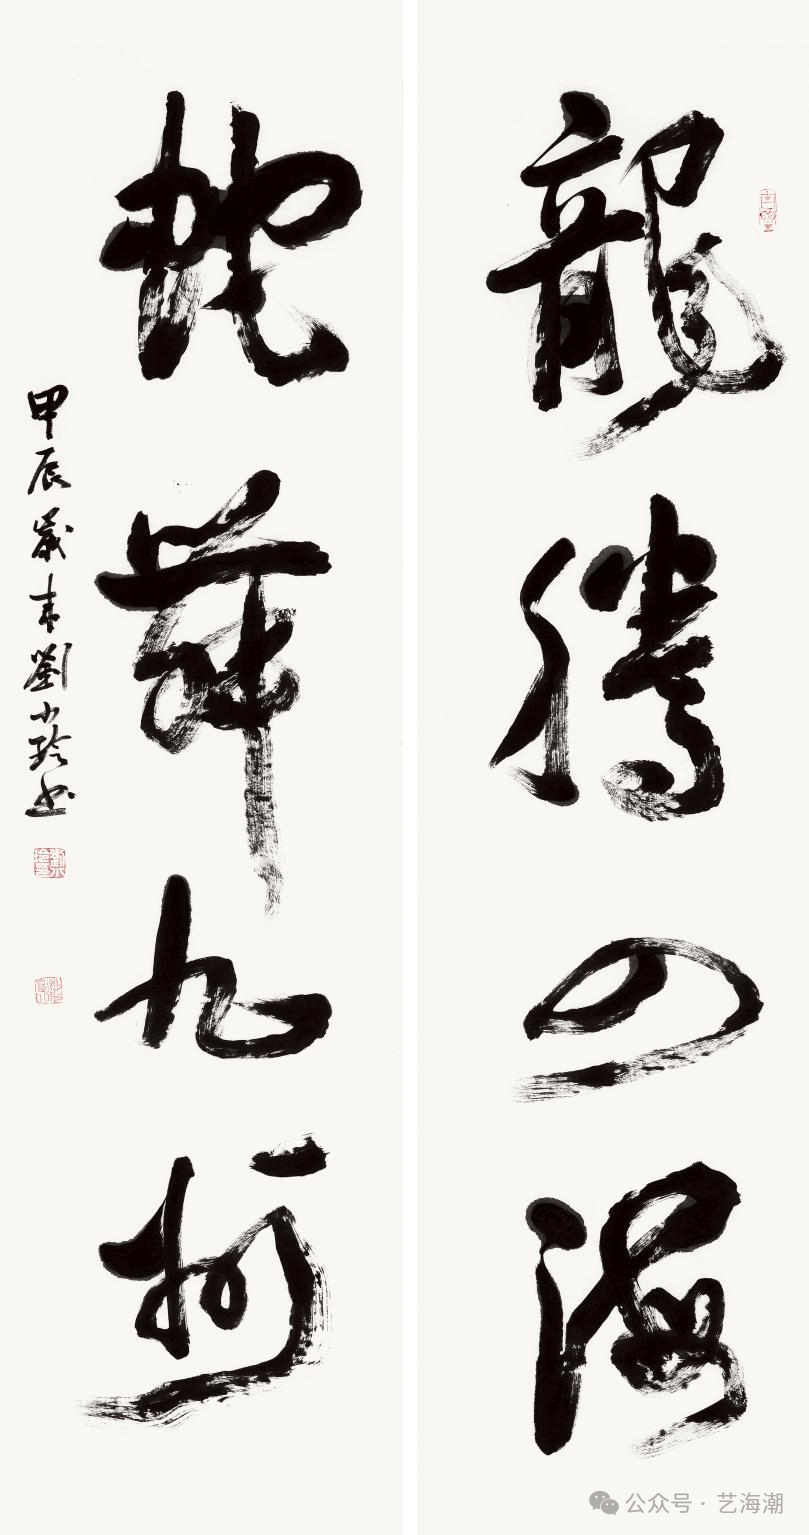 龍騰四海
蛇舞九州
甲辰歲末劉小玲书
公众号 · 艺海潮